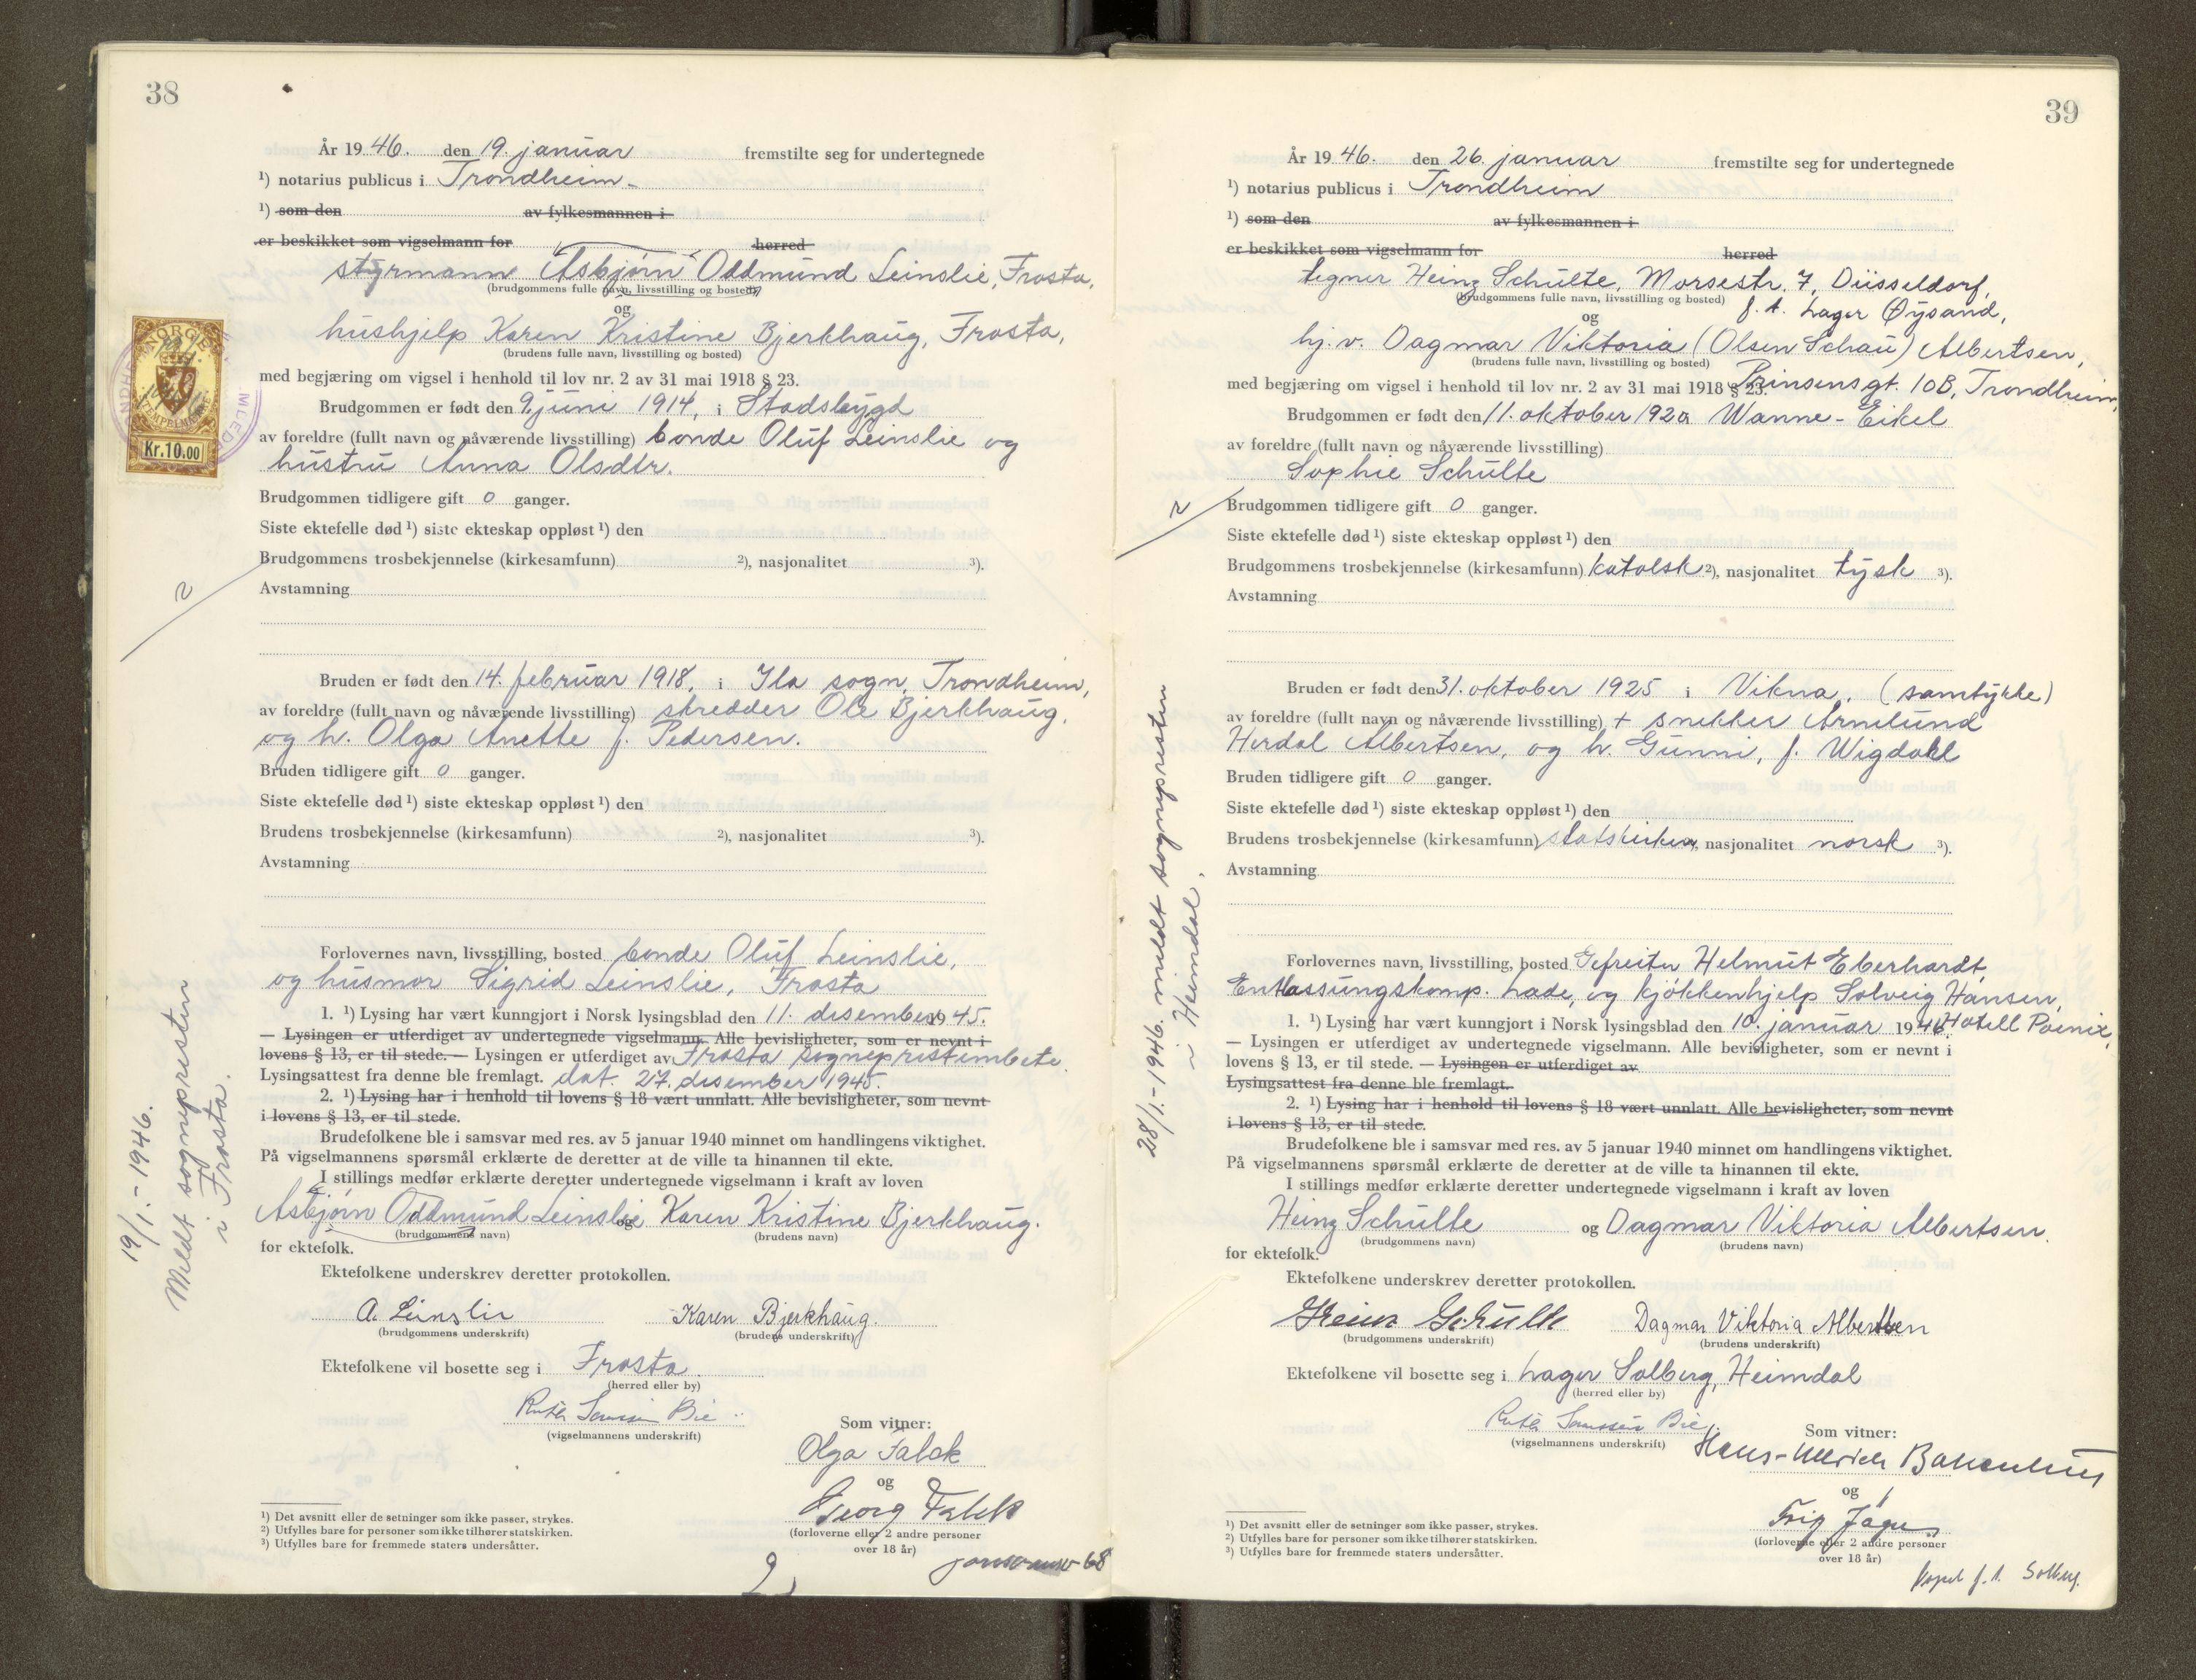 38
År 1946. den 19. januar fremstilte seg for undertegnede
¹) notarius publicus i Trondheim.
¹) som den av fylkesmannen i
er beskikket som vigselmann for herred
styrmann Asbjørn Oddmund Leinslie, Frosta,
(brudgommens fulle navn, livsstilling og bosted)
og
hushjelp Karen Kristine Bjerkhaug, Frosta,
(brudens fulle navn, livsstilling og bosted)
med begjæring om vigsel i henhold til lov nr. 2 av 31 mai 1918 § 23.
Brudgommen er født den 9. juni 1914, i Stadsbygd
av foreldre (fullt navn og nåværende livsstilling) bonde Oluf Leinslie og
hustru Anna Olsdtr.
Brudgommen tidligere gift 0 ganger.
Siste ektefelle død ¹) siste ekteskap oppløst ¹) den
Brudgommens trosbekjennelse (kirkesamfunn) ²), nasjonalitet ³).
Avstamning
Bruden er født den 14. februar 1918, i Ila sogn, Trondheim,
av foreldre (fullt navn og nåværende livsstilling) skredder Ole Bjerkhaug,
og h. Olga Anette f. Pedersen.
Bruden tidligere gift 0 ganger.
Siste ektefelle død ¹) siste ekteskap oppløst ¹) den
Brudens trosbekjennelse (kirkesamfunn) ²), nasjonalitet ³).
Avstamning
Forlovernes navn, livsstilling, bosted bonde Oluf Leinslie,
og husmor Sigrid Leinslie, Frosta
1. ¹) Lysing har vært kunngjort i Norsk lysingsblad den 11. desember 1945.
— Lysingen er utferdiget av undertegnede vigselmann. Alle bevisligheter, som er nevnt i
lovens § 13, er til stede. — Lysingen er utferdiget av Frosta sogneprestembete.
Lysingsattest fra denne ble fremlagt. dat. 27. desember 1945.
2. ¹) Lysing har i henhold til lovens § 18 vært unnlatt. Alle bevisligheter, som nevnt
i lovens § 13, er til stede.
Brudefolkene ble i samsvar med res. av 5 januar 1940 minnet om handlingens viktighet.
På vigselmannens spørsmål erklærte de deretter at de ville ta hinannen til ekte.
I stillings medfør erklærte deretter undertegnede vigselmann i kraft av loven
Asbjørn Oddmund Leinslie og Karen Kristine Bjerkhaug.
(brudgommens navn) (brudens navn)
for ektefolk.
Ektefolkene underskrev deretter protokollen.
A. Leinslie Karen Bjerkhaug.
(brudgommens underskrift) (brudens underskrift)
Ektefolkene vil bosette seg i Frosta.
(herred eller by)
Ruth Bie
(vigselmannens underskrift)
Som vitner:
Olga Falck
og
Georg Falck
(forloverne eller 2 andre personer
over 18 år)
¹) Det avsnitt eller de setninger som ikke passer, strykes.
²) Utfylles bare for personer som ikke tilhører statskirken.
³) Utfylles bare for fremmede staters undersåtter.
NORGE
Kr. 10.00
19/1.-1946.
Meldt sognepresten
i Frosta.
39
År 1946. den 26. januar fremstilte seg for undertegnede
¹) notarius publicus i Trondheim
¹) som den av fylkesmannen i
er beskikket som vigselmann for herred
tegner Heinz Schulte, Morsestr. 7, Düsseldorf,
(brudgommens fulle navn, livsstilling og bosted) f. t. Lager Øysand,
og
hj. v. Dagmar Viktoria (Olsen Schau) Albertsen,
(brudens fulle navn, livsstilling og bosted)
med begjæring om vigsel i henhold til lov nr. 2 av 31 mai 1918 § 23. Prinsensgt. 10B, Trondheim,
Brudgommen er født den 11. oktober 1920 Wanne-Eikel
av foreldre (fullt navn og nåværende livsstilling)
Sophie Schulte
Brudgommen tidligere gift 0 ganger.
Siste ektefelle død ¹) siste ekteskap oppløst ¹) den
Brudgommens trosbekjennelse (kirkesamfunn) katolsk ²), nasjonalitet tysk ³).
Avstamning
Bruden er født den 31. oktober 1925 i Vikna. (samtykke)
av foreldre (fullt navn og nåværende livsstilling) + snekker Arnelund
Herdal Albertsen, og h. Gunni, f. Wigdahl
Bruden tidligere gift 0 ganger.
Siste ektefelle død ¹) siste ekteskap oppløst ¹) den
Brudens trosbekjennelse (kirkesamfunn) statskirken, nasjonalitet norsk ³).
Avstamning
Forlovernes navn, livsstilling, bosted Gefreiter Helmut Eberhardt,
Entlassungskomp. Lade, og kjøkkenhjelp Solveig Hansen,
1. ¹) Lysing har vært kunngjort i Norsk lysingsblad den 10. januar 1946. Hotell Pønix,
— Lysingen er utferdiget av undertegnede vigselmann. Alle bevisligheter, som er nevnt i
lovens § 13, er til stede. — Lysingen er utferdiget av
Lysingsattest fra denne ble fremlagt.
2. ¹) Lysing har i henhold til lovens § 18 vært unnlatt. Alle bevisligheter, som nevnt
i lovens § 13, er til stede.
Brudefolkene ble i samsvar med res. av 5 januar 1940 minnet om handlingens viktighet.
På vigselmannens spørsmål erklærte de deretter at de ville ta hinannen til ekte.
I stillings medfør erklærte deretter undertegnede vigselmann i kraft av loven
Heinz Schulte og Dagmar Viktoria Albertsen.
(brudgommens navn) (brudens navn)
for ektefolk.
Ektefolkene underskrev deretter protokollen.
Heinz Schulte Dagmar Viktoria Albertsen
(brudgommens underskrift) (brudens underskrift)
Ektefolkene vil bosette seg i Lager Solberg, Heimdal
(herred eller by)
Ruth Bie
(vigselmannens underskrift)
Som vitner:
Hans-Ullrich
og
(forloverne eller 2 andre personer
over 18 år)
f. t. Solberg.
¹) Det avsnitt eller de setninger som ikke passer, strykes.
²) Utfylles bare for personer som ikke tilhører statskirken.
³) Utfylles bare for fremmede staters undersåtter.
28/1.-1946. meldt sognepresten
i Heimdal.